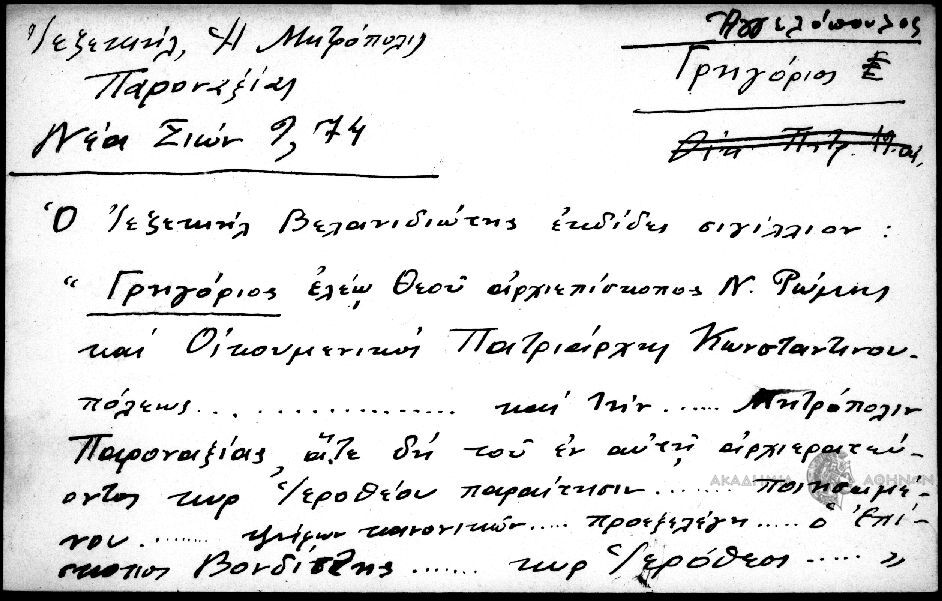 Ἰεζεκιήλ, Ἡ Μητρόπολις
Παροναξίας
Νέα Σιών 9, 74
Ἀγγελόπουλος
Γρηγόριος Ε
Οἰκ. Πατρ.
Ὁ Ἰεζεκιήλ Βελανιδιώτης ἐκδίδει σιγίλλιον :
“ Γρηγόριος ἐλέῳ Θεοῦ ἀρχιεπίσκοπος Ν. Ρώμης
καί Οἰκουμενικός Πατριάρχης Κωνσταντινου-
πόλεως ................ καί τήν ...... Μητρόπολιν
Παροναξίας, ἅτε δή τοῦ ἐν αὐτῇ ἀρχιερατεύ-
οντος κυρ Ἱεροθέου παραίτησιν ........ ποιησαμέ-
νου ........ ψήφων κανονικῶν ..... προεξελέγη ..... ὁ Ἐπί-
σκοπος Βονδίτζης ....... κυρ Ἱερόθεος ..... ”
ΑΚΑΔΗΜΙΑ ΑΘΗΝΩΝ